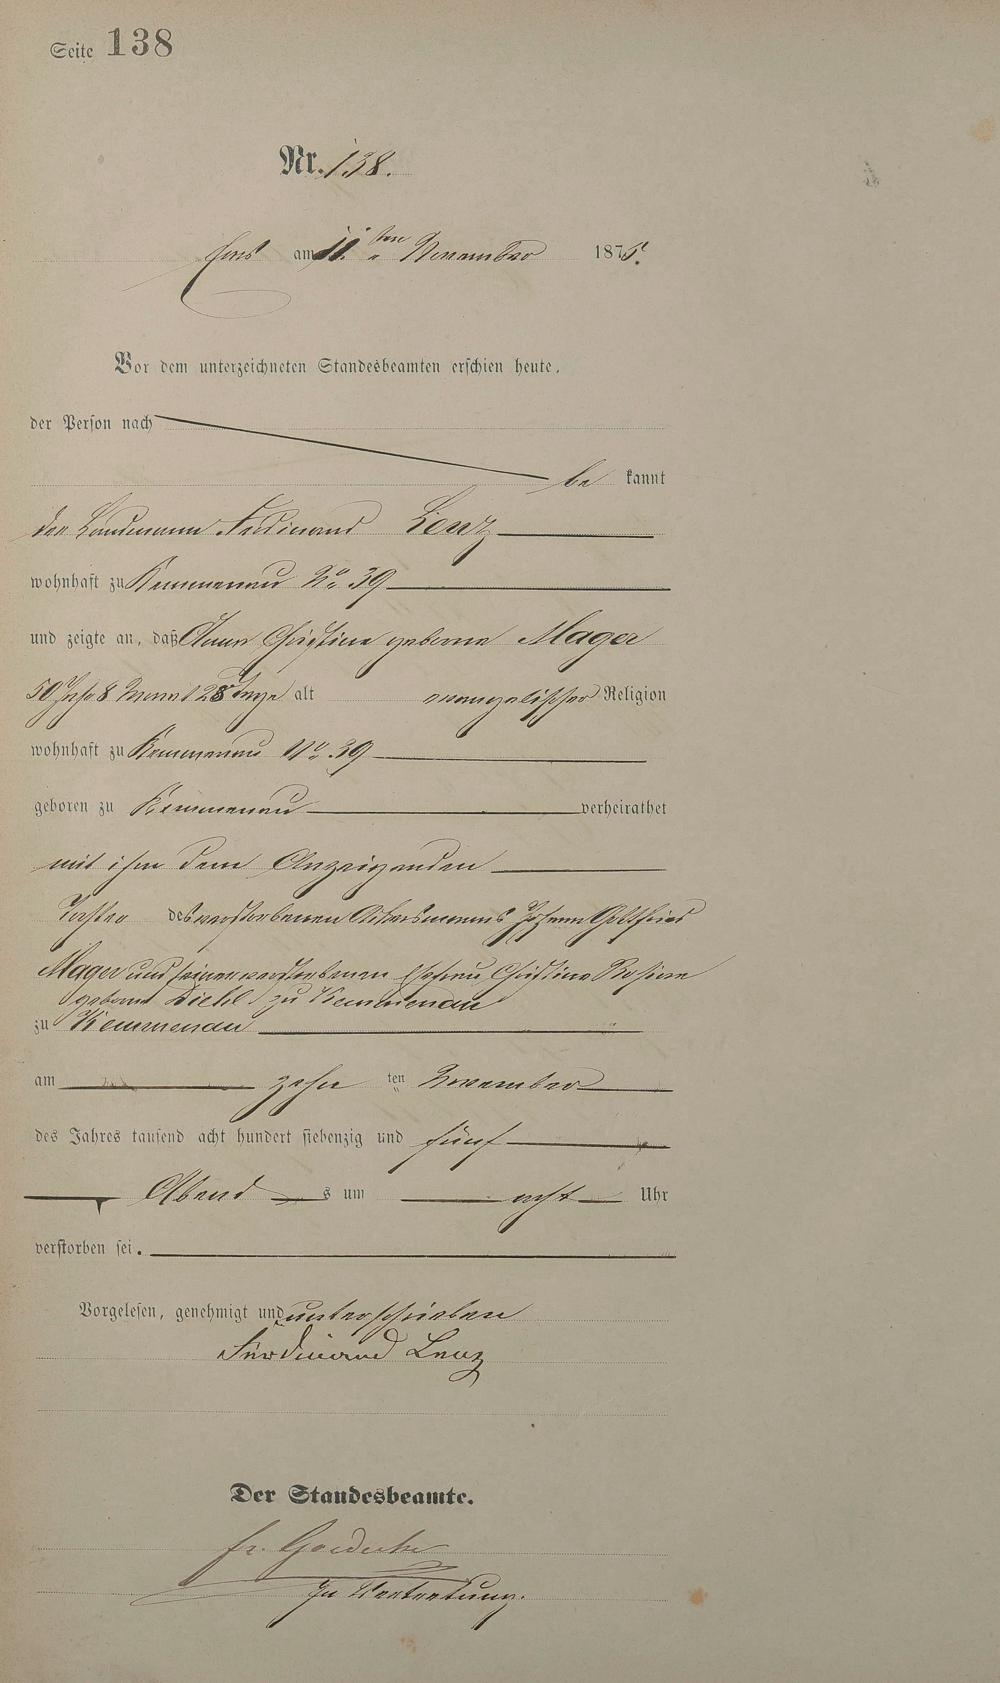 Seite 138
Nr. 138.
Ems am 11ten November 1875.
Vor dem unterzeichneten Standesbeamten erschien heute,
der Person nach
be kannt
der Landmann Ferdinand Lenz
wohnhaft zu Kemmenau No. 39
und zeigte an, daß Anna Christine geborne Mager
50 Jahr 8 Monat 28 Tage alt evangelischer Religion
wohnhaft zu Kemmenau No. 39
geboren zu Kemmenau verheirathet
mit ihm dem Anzeigenden
Tochter des verstorbenen Ackersmanns Johann Gottfried
Mager und seiner verstorbenen Ehefrau Christine Rosine
geborne Diehl zu Kemmenau
zu Kemmenau
am zehn ten November
des Jahres tausend acht hundert siebenzig und fünf
Abend s um acht Uhr
verstorben sei.
Vorgelesen, genehmigt und unterschrieben
Ferdinand Lenz
Der Standesbeamte.
In Vertretung.